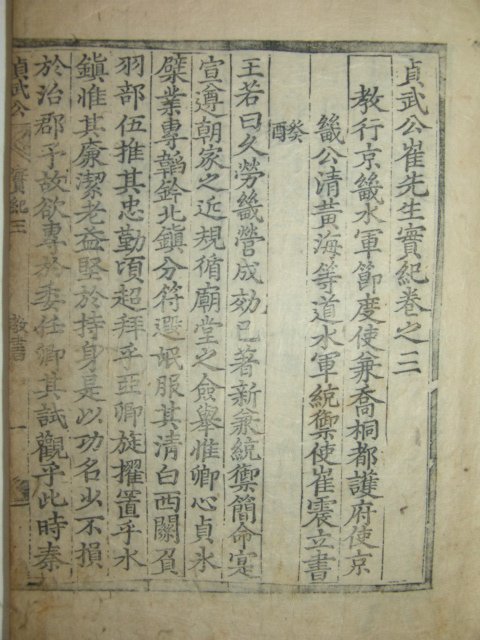 貞武公崔先生實紀卷之三
教行京畿水軍節度使兼喬桐都護府使京
畿公清黃海等道水軍統禦使崔震立書
癸酉
王若曰久勞畿營成効已著新兼統禦簡命寔
宣遵朝家之近規循廟堂之僉舉惟卿心貞氷
檗業專韜鈐北鎮分符遐氓服其清白西關負
羽部伍推其忠勤頃超拜乎亞卿旋擢置乎水
鎮惟其廉潔老益堅於持身是以功名少不損
於治郡予故欲專於委任卿其試觀乎此時秦
貞武公
實紀三
教書
一